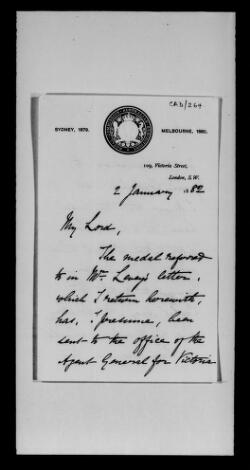 CAD/264
SYDNEY, 1879. MELBOURNE, 1880.
109, Victoria Street,
London, S.W.
2 January 1882
My Lord,
The medal referred
to in Mr. Levey's letter,
which I return herewith,
has, I presume, been
sent to the office of the
Agent General for Victoria